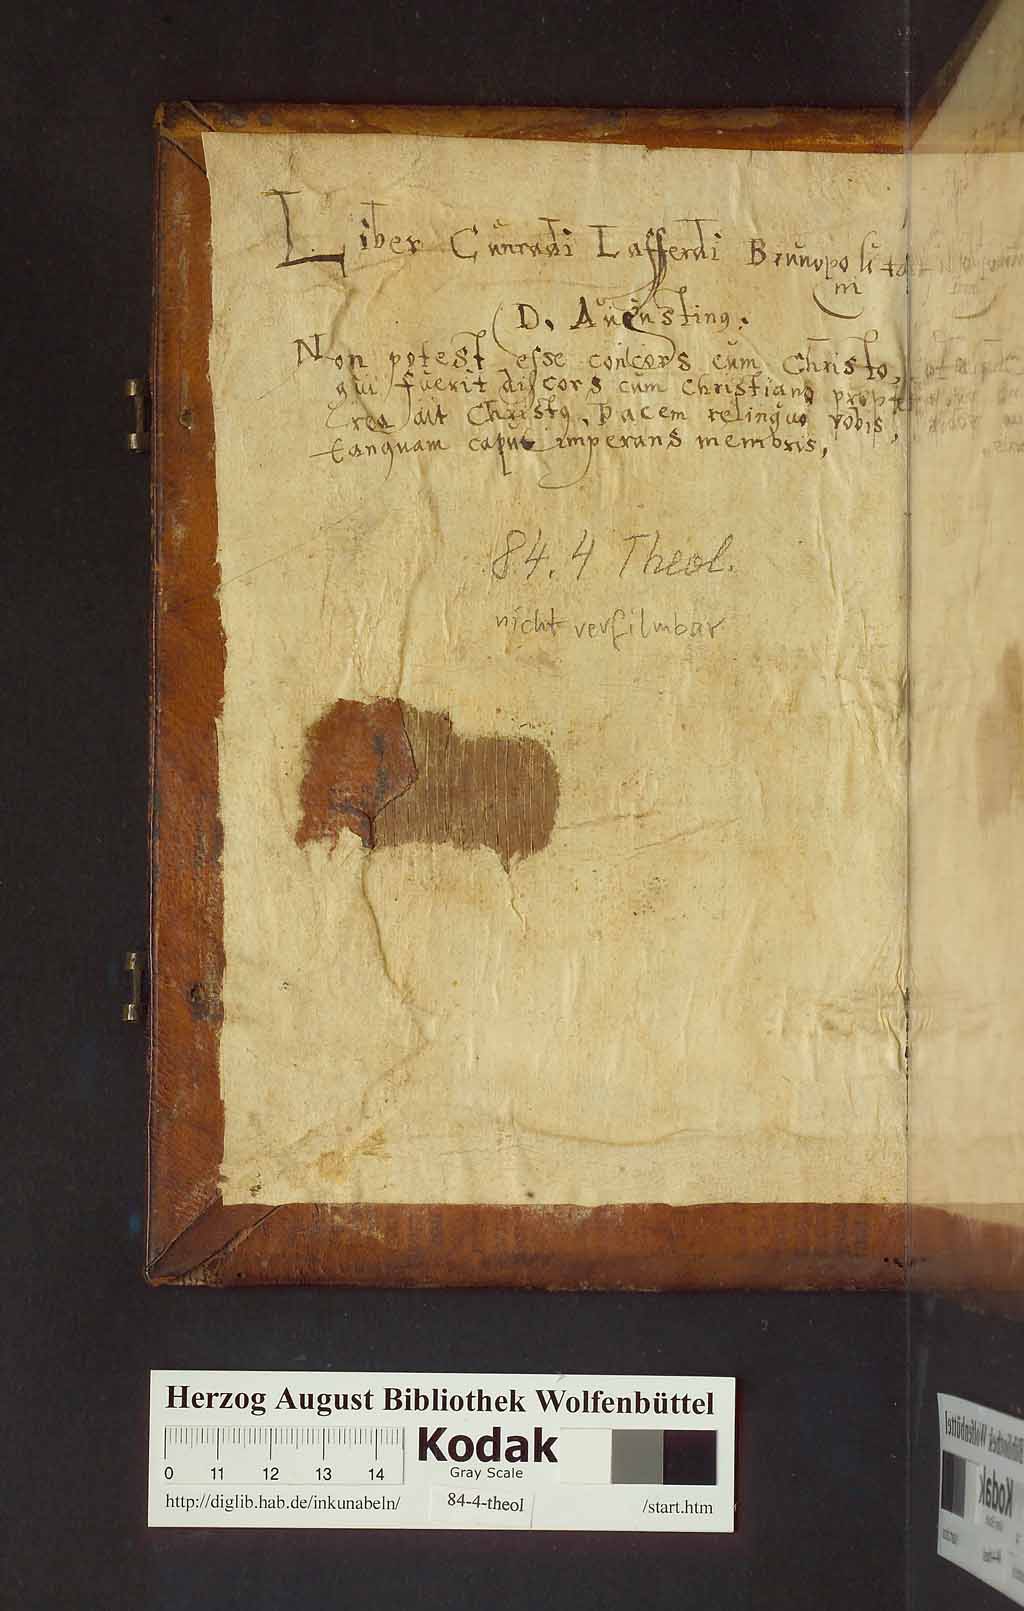 Liber Cunradi Lafferdi Brunopolita
ni
D. Augustinꝰ.
Non potest esse concors cum Christo,
qui fuerit discors cum Christiano propte
rea ait Christꝰ, Pacem relinquo vobis,
tanquam caput imperans membris,
84.4 Theol.
nicht verfilmbar
Herzog August Bibliothek Wolfenbüttel
0 11 12 13 14
Kodak
Gray Scale
http://diglib.hab.de/inkunabeln/ 84-4-theol /start.htm